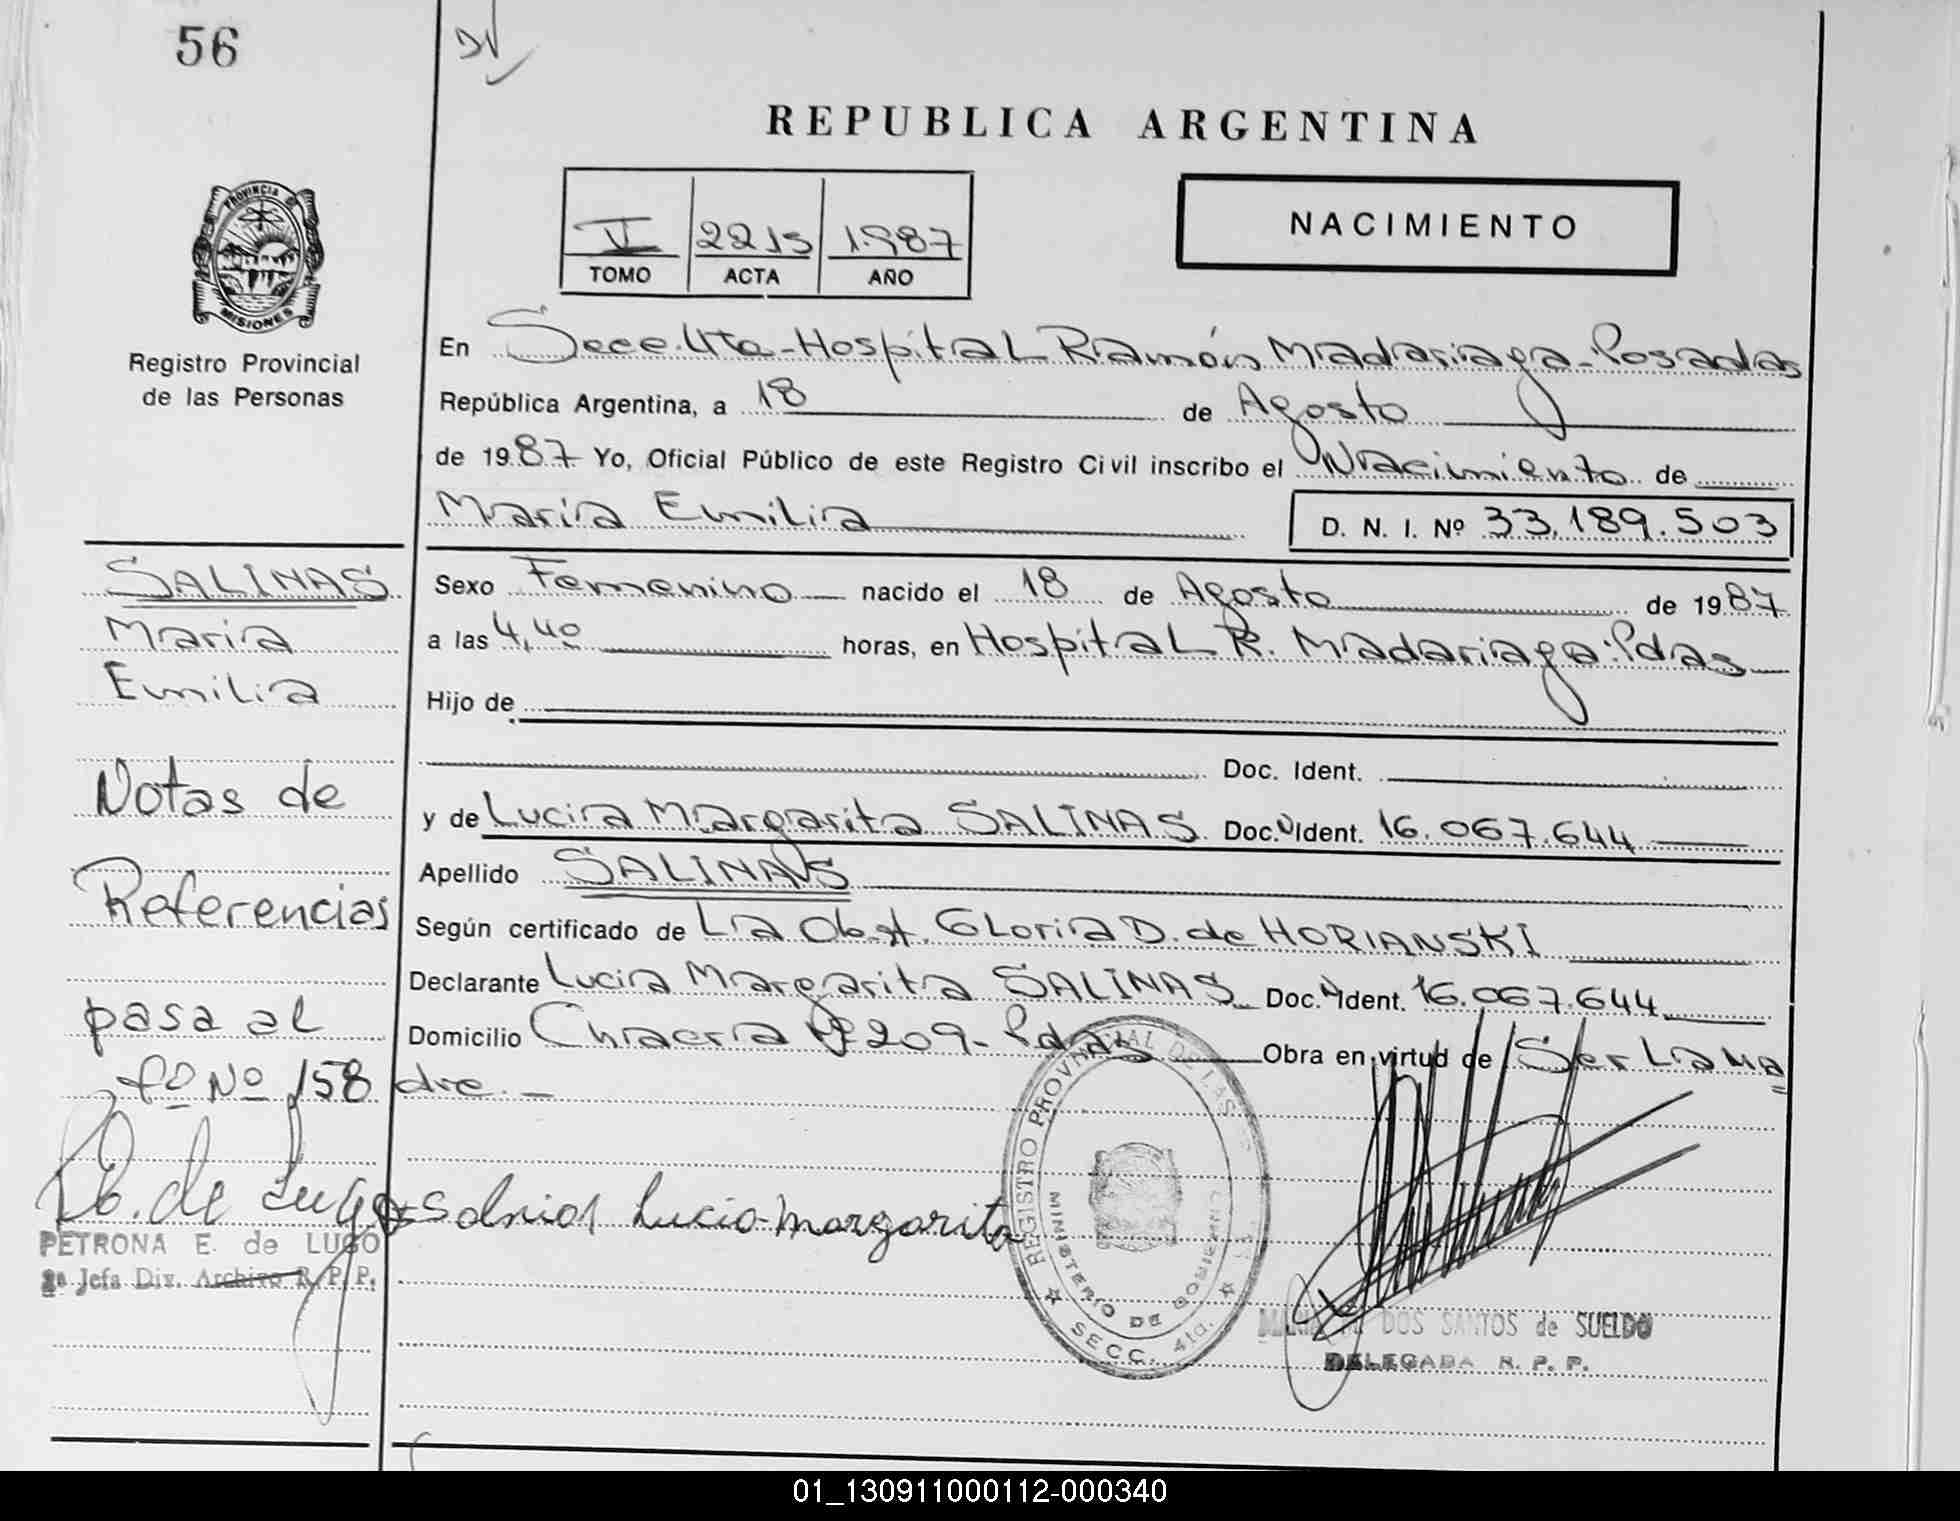 56
DV
REPUBLICA ARGENTINA
PROVINCIA DE
MISIONES
Registro Provincial
de las Personas
V 2215 1.987
TOMO ACTA AÑO
NACIMIENTO
En Secc. 4ta - Hospital Ramón Madariaga - Posadas
República Argentina, a 18 de Agosto
de 1987 Yo, Oficial Público de este Registro Civil inscribo el Nacimiento de
María Emilia D. N. I. Nº 33.189.503
SALINAS
María
Emilia
Notas de
Referencias
pasa al
fº Nº 158
PETRONA E. de LUGO
2ª Jefa Div. Archivo R. P. P.
Sexo Femenino nacido el 18 de Agosto de 1987
a las 4,40 horas, en Hospital R. Madariaga. Pdas
Hijo de
Doc. Ident.
y de Lucia Margarita SALINAS Doc. Ident. 16.067.644
Apellido SALINAS
Según certificado de La Obst. Gloria D. de HORIANSKI
Declarante Lucia Margarita SALINAS Doc. Ident. 16.067.644
Domicilio Chacra Nº 209 - Pdas Obra en virtud de Ser La Ma
dre. -
Salinas Lucia Margarita
REGISTRO PROVINCIAL DE LAS
MINISTERIO DE GOBIERNO
SECC. 4ta.
DOS SANTOS de SUELDO
DELEGADA R. P. P.
01_130911000112-000340